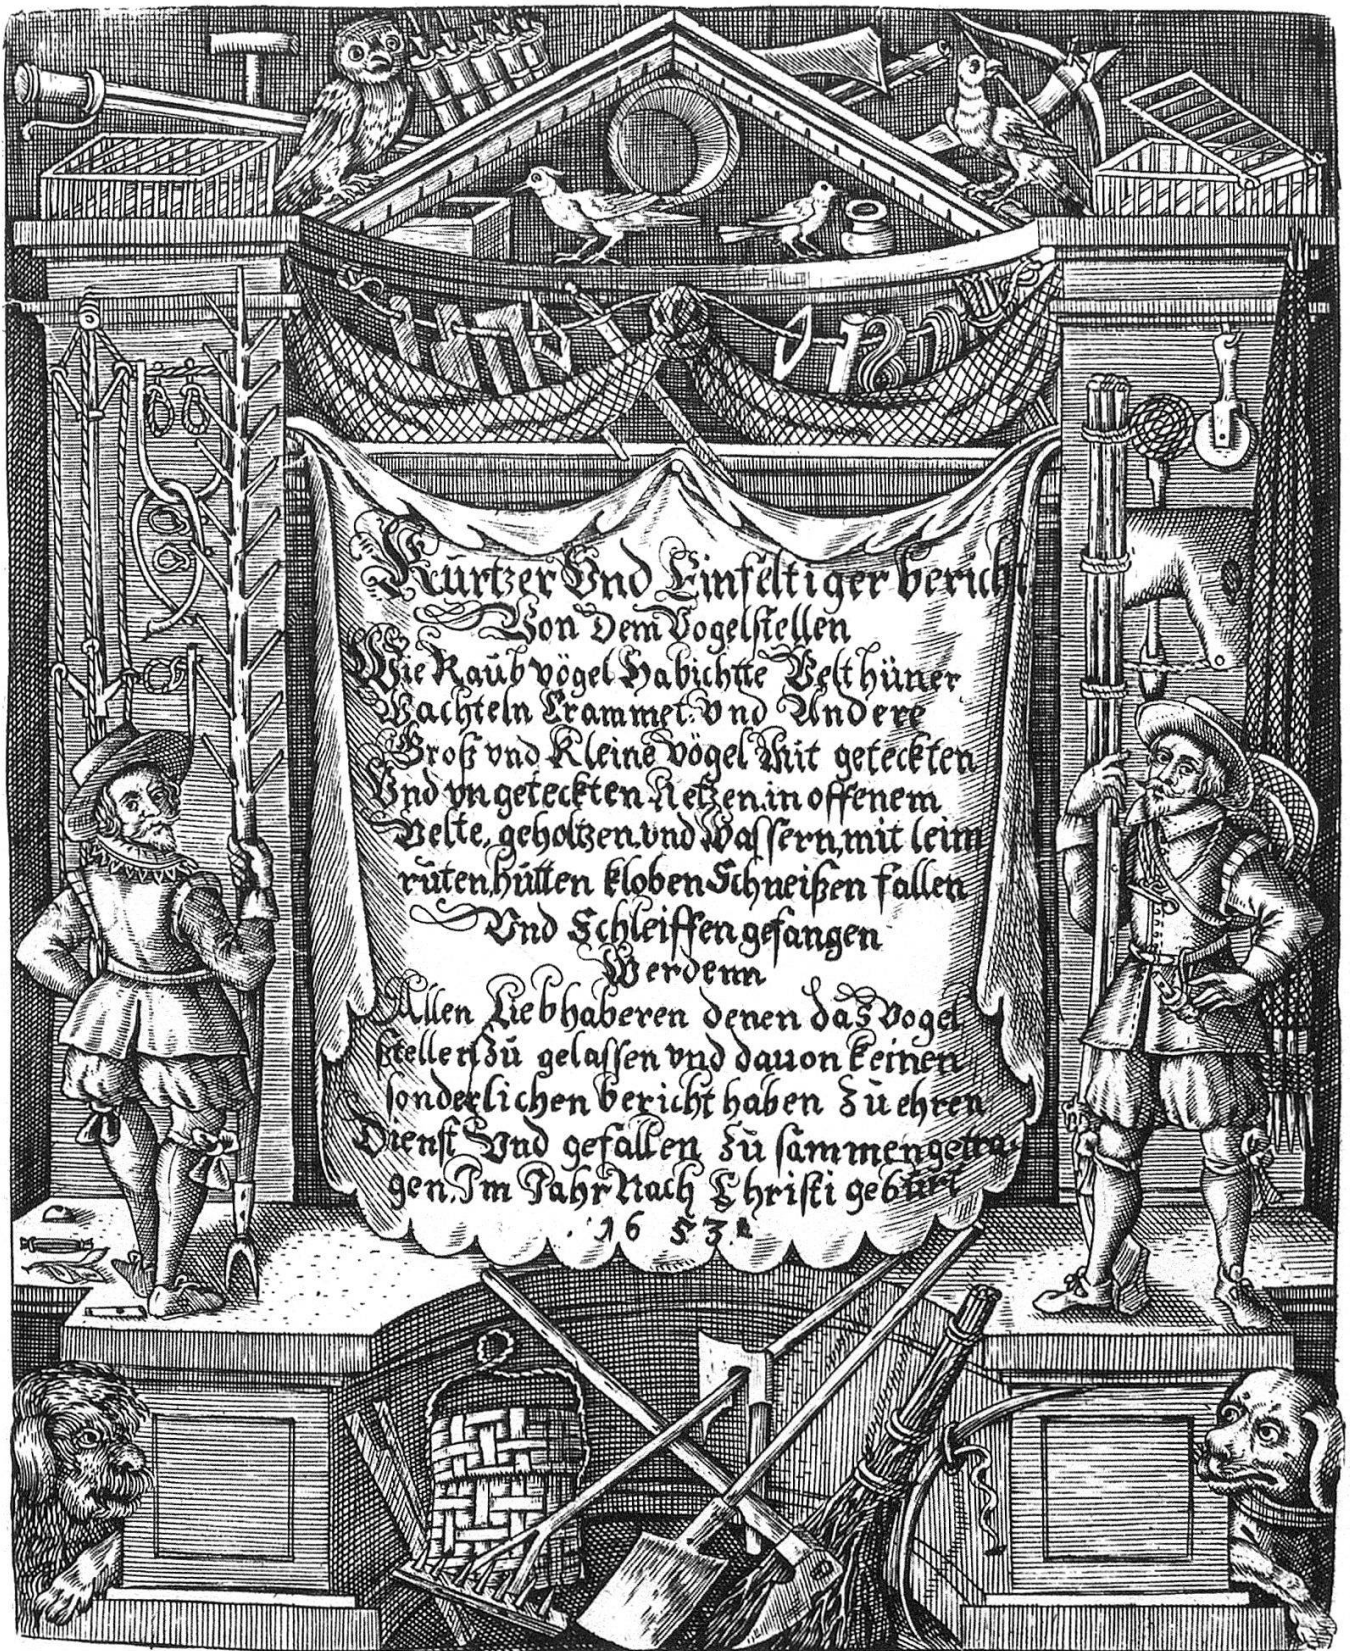 Kurtzer Vnd Einfeltiger bericht
Von Dem Vogelstellen
Wie Raub vögel Habichtte Velthüner
Wachteln Crammet: vnd Andere
Groß vnd Kleine vögel Mit geteckten
Vnd vngeteckten Netzen in offenem
Velte, geholtzen, vnd Wassern, mit leim
ruten, hütten kloben Schneißen fallen
Vnd Schleiffen gefangen
Werdenn
Allen Liebhaberen denen das Vogel
stellen zu gelassen vnd dauon keinen
sonderlichen bericht haben Zu ehren
Dienst Vnd gefallen zu sammengetra-
gen. Im Jahr Nach Christi geburt
1653.